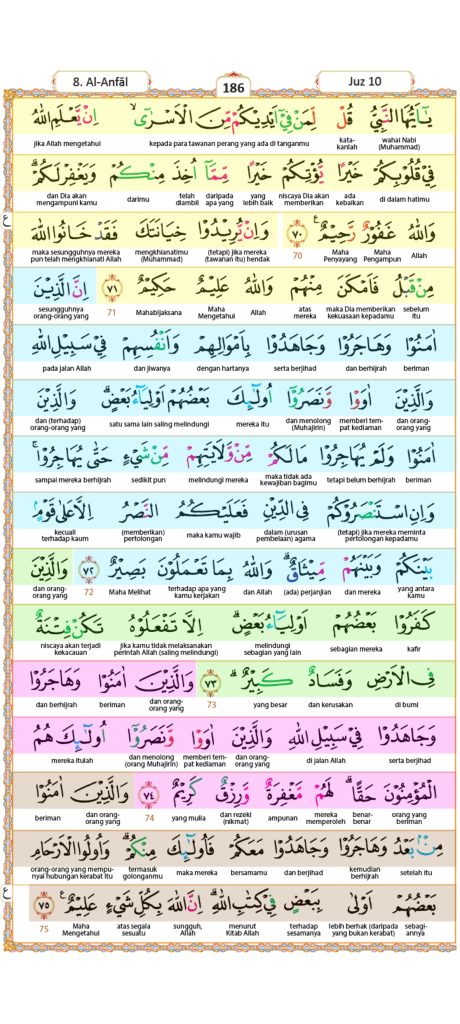 8. Al-Anfāl
186
Juz 10
يٰٓاَيُّهَا النَّبِيُّ قُلْ لِّمَنْ فِيْٓ اَيْدِيْكُمْ مِّنَ الْاَسْرٰٓىۙ اِنْ يَّعْلَمِ اللّٰهُ
wahai Nabi (Muhammad) kata-kanlah kepada para tawanan perang yang ada di tanganmu jika Allah mengetahui
فِيْ قُلُوْبِكُمْ خَيْرًا يُّؤْتِكُمْ خَيْرًا مِّمَّآ اُخِذَ مِنْكُمْ وَيَغْفِرْ لَكُمْۗ
di dalam hatimu ada kebaikan niscaya Dia akan memberikan yang lebih baik daripada apa yang telah diambil darimu dan Dia akan mengampuni kamu
وَاللّٰهُ غَفُوْرٌ رَّحِيْمٌ ٧٠ وَاِنْ يُّرِيْدُوْا خِيَانَتَكَ فَقَدْ خَانُوا اللّٰهَ
Allah Maha Pengampun Maha Penyayang 70 (tetapi) jika mereka (tawanan itu) hendak mengkhianatimu (Muhammad) maka sesungguhnya mereka pun telah mengkhianati Allah
مِنْ قَبْلُ فَاَمْكَنَ مِنْهُمْۗ وَاللّٰهُ عَلِيْمٌ حَكِيْمٌ ٧١ اِنَّ الَّذِيْنَ
sebelum itu maka Dia memberikan kekuasaan kepadamu atas mereka Allah Maha Mengetahui Mahabijaksana 71 sesungguhnya orang-orang yang
اٰمَنُوْا وَهَاجَرُوْا وَجَاهَدُوْا بِاَمْوَالِهِمْ وَاَنْفُسِهِمْ فِيْ سَبِيْلِ اللّٰهِ
beriman dan berhijrah serta berjihad dengan hartanya dan jiwanya pada jalan Allah
وَالَّذِيْنَ اٰوَوْا وَّنَصَرُوْٓا اُولٰۤىِٕكَ بَعْضُهُمْ اَوْلِيَاۤءُ بَعْضٍۗ وَالَّذِيْنَ
dan orang-orang yang memberi tempat kediaman dan menolong (Muhajirin) mereka itu satu sama lain saling melindungi dan (terhadap) orang-orang yang
اٰمَنُوْا وَلَمْ يُهَاجِرُوْا مَا لَكُمْ مِّنْ وَّلَايَتِهِمْ مِّنْ شَيْءٍ حَتّٰى يُهَاجِرُوْاۚ
beriman tetapi belum berhijrah maka tidak ada kewajiban bagimu melindungi mereka sedikit pun sampai mereka berhijrah
وَاِنِ اسْتَنْصَرُوْكُمْ فِى الدِّيْنِ فَعَلَيْكُمُ النَّصْرُ اِلَّا عَلٰى قَوْمٍۢ
(tetapi) jika mereka meminta pertolongan kepadamu dalam (urusan pembelaan) agama maka kamu wajib (memberikan) pertolongan kecuali terhadap kaum
بَيْنَكُمْ وَبَيْنَهُمْ مِّيْثَاقٌۗ وَاللّٰهُ بِمَا تَعْمَلُوْنَ بَصِيْرٌ ٧٢ وَالَّذِيْنَ
yang antara kamu dan mereka (ada) perjanjian dan Allah terhadap apa yang kamu kerjakan Maha Melihat 72 dan orang-orang yang
كَفَرُوْا بَعْضُهُمْ اَوْلِيَاۤءُ بَعْضٍۗ اِلَّا تَفْعَلُوْهُ تَكُنْ فِتْنَةٌ
kafir sebagian mereka melindungi sebagian yang lain jika kamu tidak melaksanakan perintah Allah (saling melindungi) niscaya akan terjadi kekacauan
فِى الْاَرْضِ وَفَسَادٌ كَبِيْرٌۗ ٧٣ وَالَّذِيْنَ اٰمَنُوْا وَهَاجَرُوْا
di bumi dan kerusakan yang besar 73 dan orang-orang yang beriman dan berhijrah
وَجَاهَدُوْا فِيْ سَبِيْلِ اللّٰهِ وَالَّذِيْنَ اٰوَوْا وَّنَصَرُوْٓا اُولٰۤىِٕكَ هُمُ
serta berjihad di jalan Allah dan orang-orang yang memberi tempat kediaman dan menolong (orang Muhajirin) mereka itulah
الْمُؤْمِنُوْنَ حَقًّاۗ لَهُمْ مَّغْفِرَةٌ وَّرِزْقٌ كَرِيْمٌ ٧٤ وَالَّذِيْنَ اٰمَنُوْا
orang yang beriman benar-benar mereka memperoleh ampunan dan rezeki (nikmat) yang mulia 74 dan orang-orang yang beriman
مِنْۢ بَعْدُ وَهَاجَرُوْا وَجَاهَدُوْا مَعَكُمْ فَاُولٰۤىِٕكَ مِنْكُمْۗ وَاُولُوا الْاَرْحَامِ
setelah itu kemudian berhijrah dan berjihad bersamamu maka mereka termasuk golonganmu orang-orang yang mempunyai hubungan kerabat itu
بَعْضُهُمْ اَوْلٰى بِبَعْضٍ فِيْ كِتٰبِ اللّٰهِۗ اِنَّ اللّٰهَ بِكُلِّ شَيْءٍ عَلِيْمٌ ٧٥
sebagi-annya lebih berhak (daripada yang bukan kerabat) terhadap sesamanya menurut Kitab Allah sungguh, Allah atas segala sesuatu Maha Mengetahui 75
ع
ع